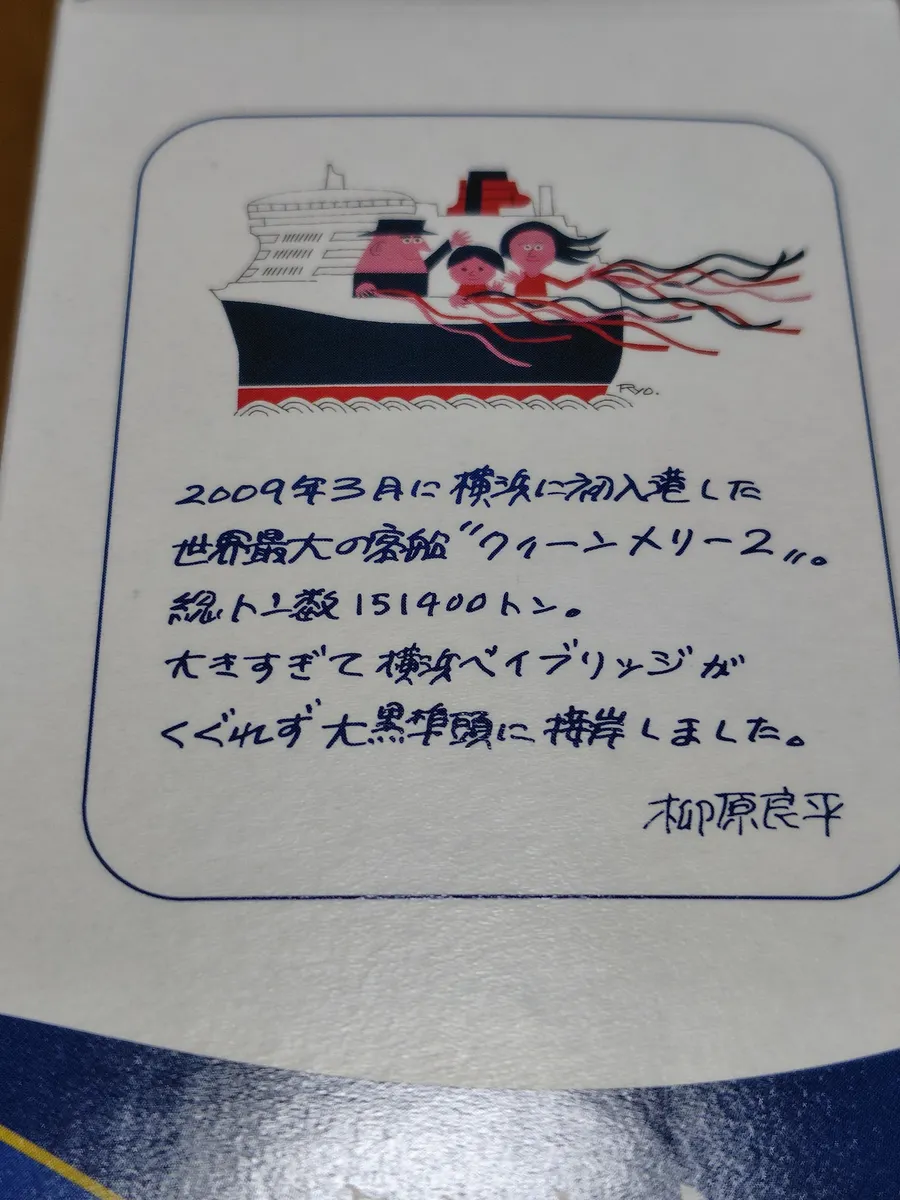 Ryo.
2009年3月に横浜に初入港した
世界最大の客船〝クィーンメリー2〟。
総トン数151400トン。
大きすぎて横浜ベイブリッジが
くぐれず大黒埠頭に接岸しました。
柳原良平